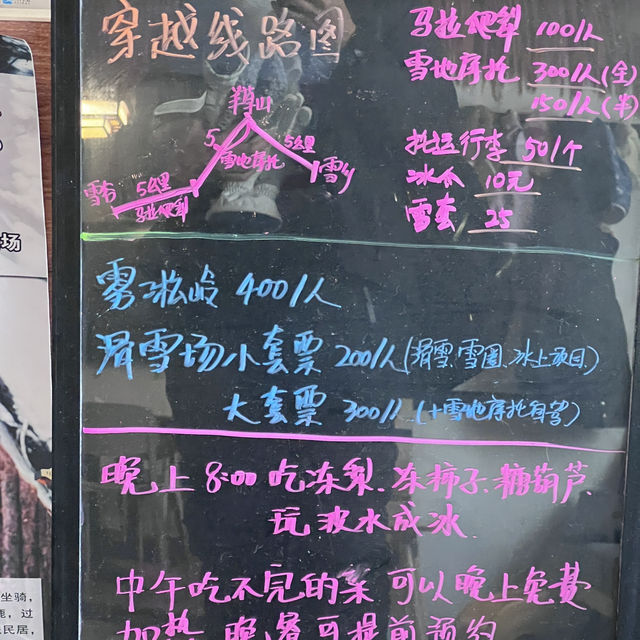 穿越线路图
马拉爬犁 100/人
雪地摩托 300/人(全)
150/人(半)
托运行李 50/个
冰爪 10元
雪套 25
羊草山
5
5公里
雪地摩托
雪谷
5公里
马拉爬犁
雪乡
雾凇岭 400/人
滑雪场小套票 200/人(滑雪.雪圈.冰上项目)
大套票 300/人 (+雪地摩托自营)
晚上 8:00 吃冻梨.冻柿子.糖葫芦.
玩泼水成冰.
中午吃不完的菜 可以晚上免费
加热 晚餐可提前预约
场
坐骑,
鹿,过
民居,